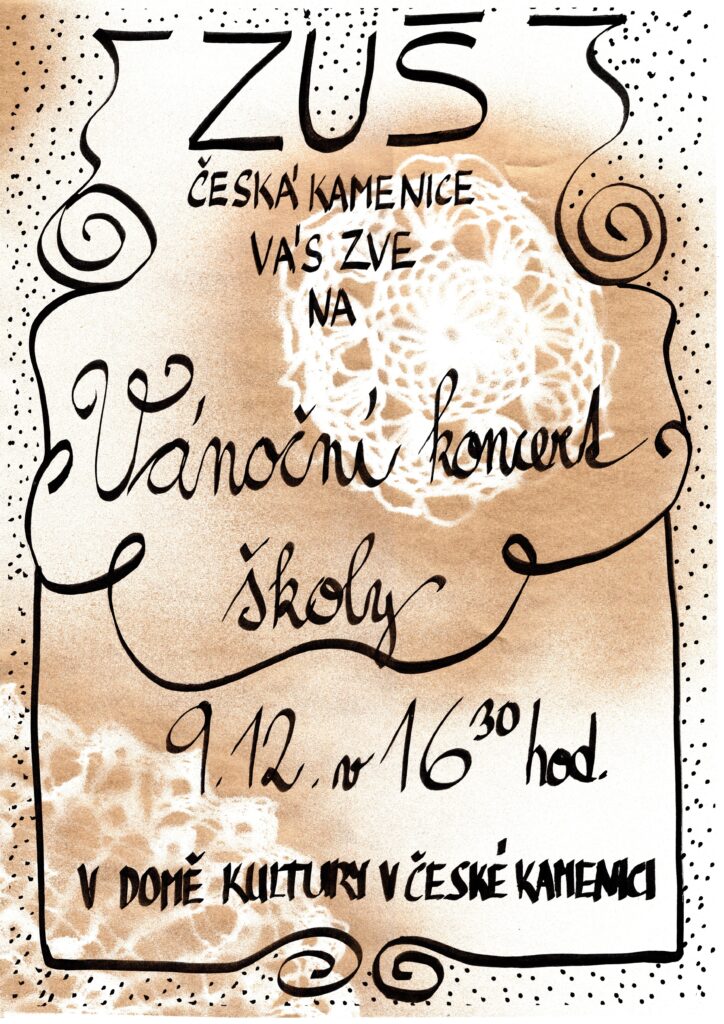 ZUŠ
ČESKÁ KAMENICE
VÁS ZVE
NA
Vánoční koncert
školy
9.12. v 16³⁰ hod.
V DOMĚ KULTURY V ČESKÉ KAMENICI